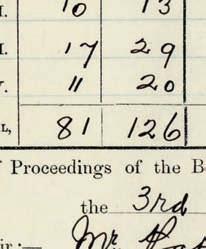 I. 10 13
I. 17 29
V. 11 20
L, 81 126
f Proceedings of the B
the 3rd
ir:— Mr.